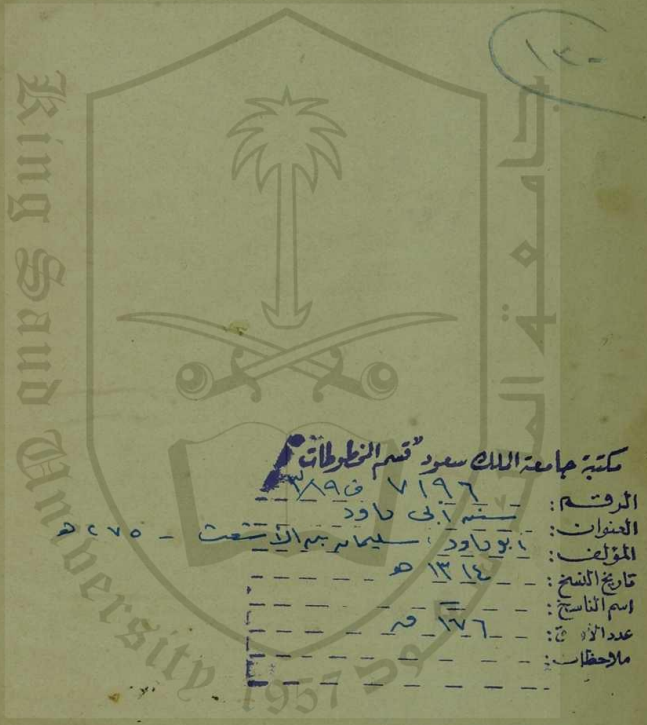 ١٣٠
King Saud University
جامعة الملك سعود
1957
مكتبة جامعة الملك سعود "قسم المخطوطات"
الرقم: ٧١٩٦ ف ١٨٩
العنوان: سنن أبي داود
المؤلف: أبو داود، سليمان بن الأشعث - ٢٧٥ هـ
تاريخ النسخ: ١٣١٤ هـ
اسم الناسخ:
عدد الأوراق: ١٧٦ ق
ملاحظات: